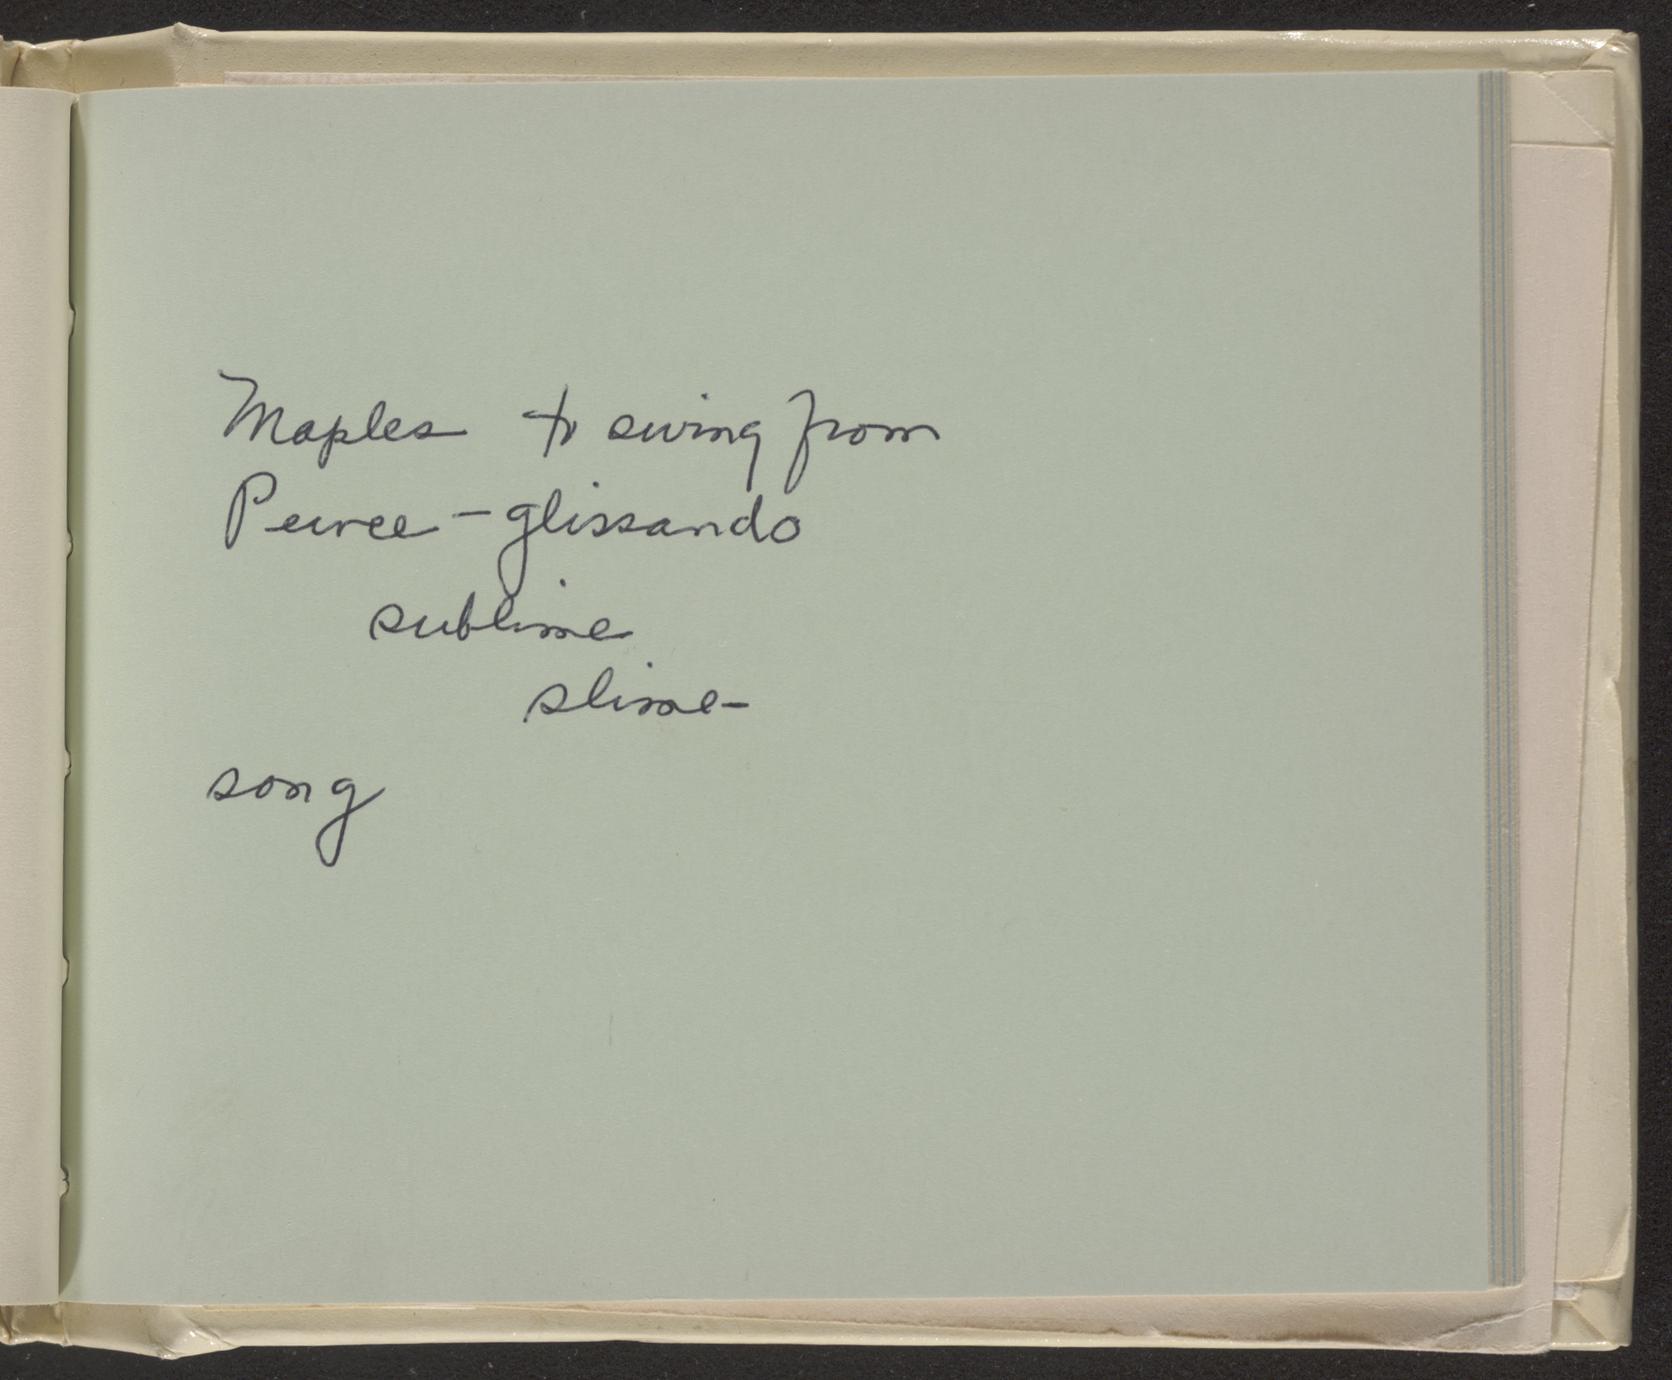 Maples to swing from
Peewee - glissando
sublime
slime-
song